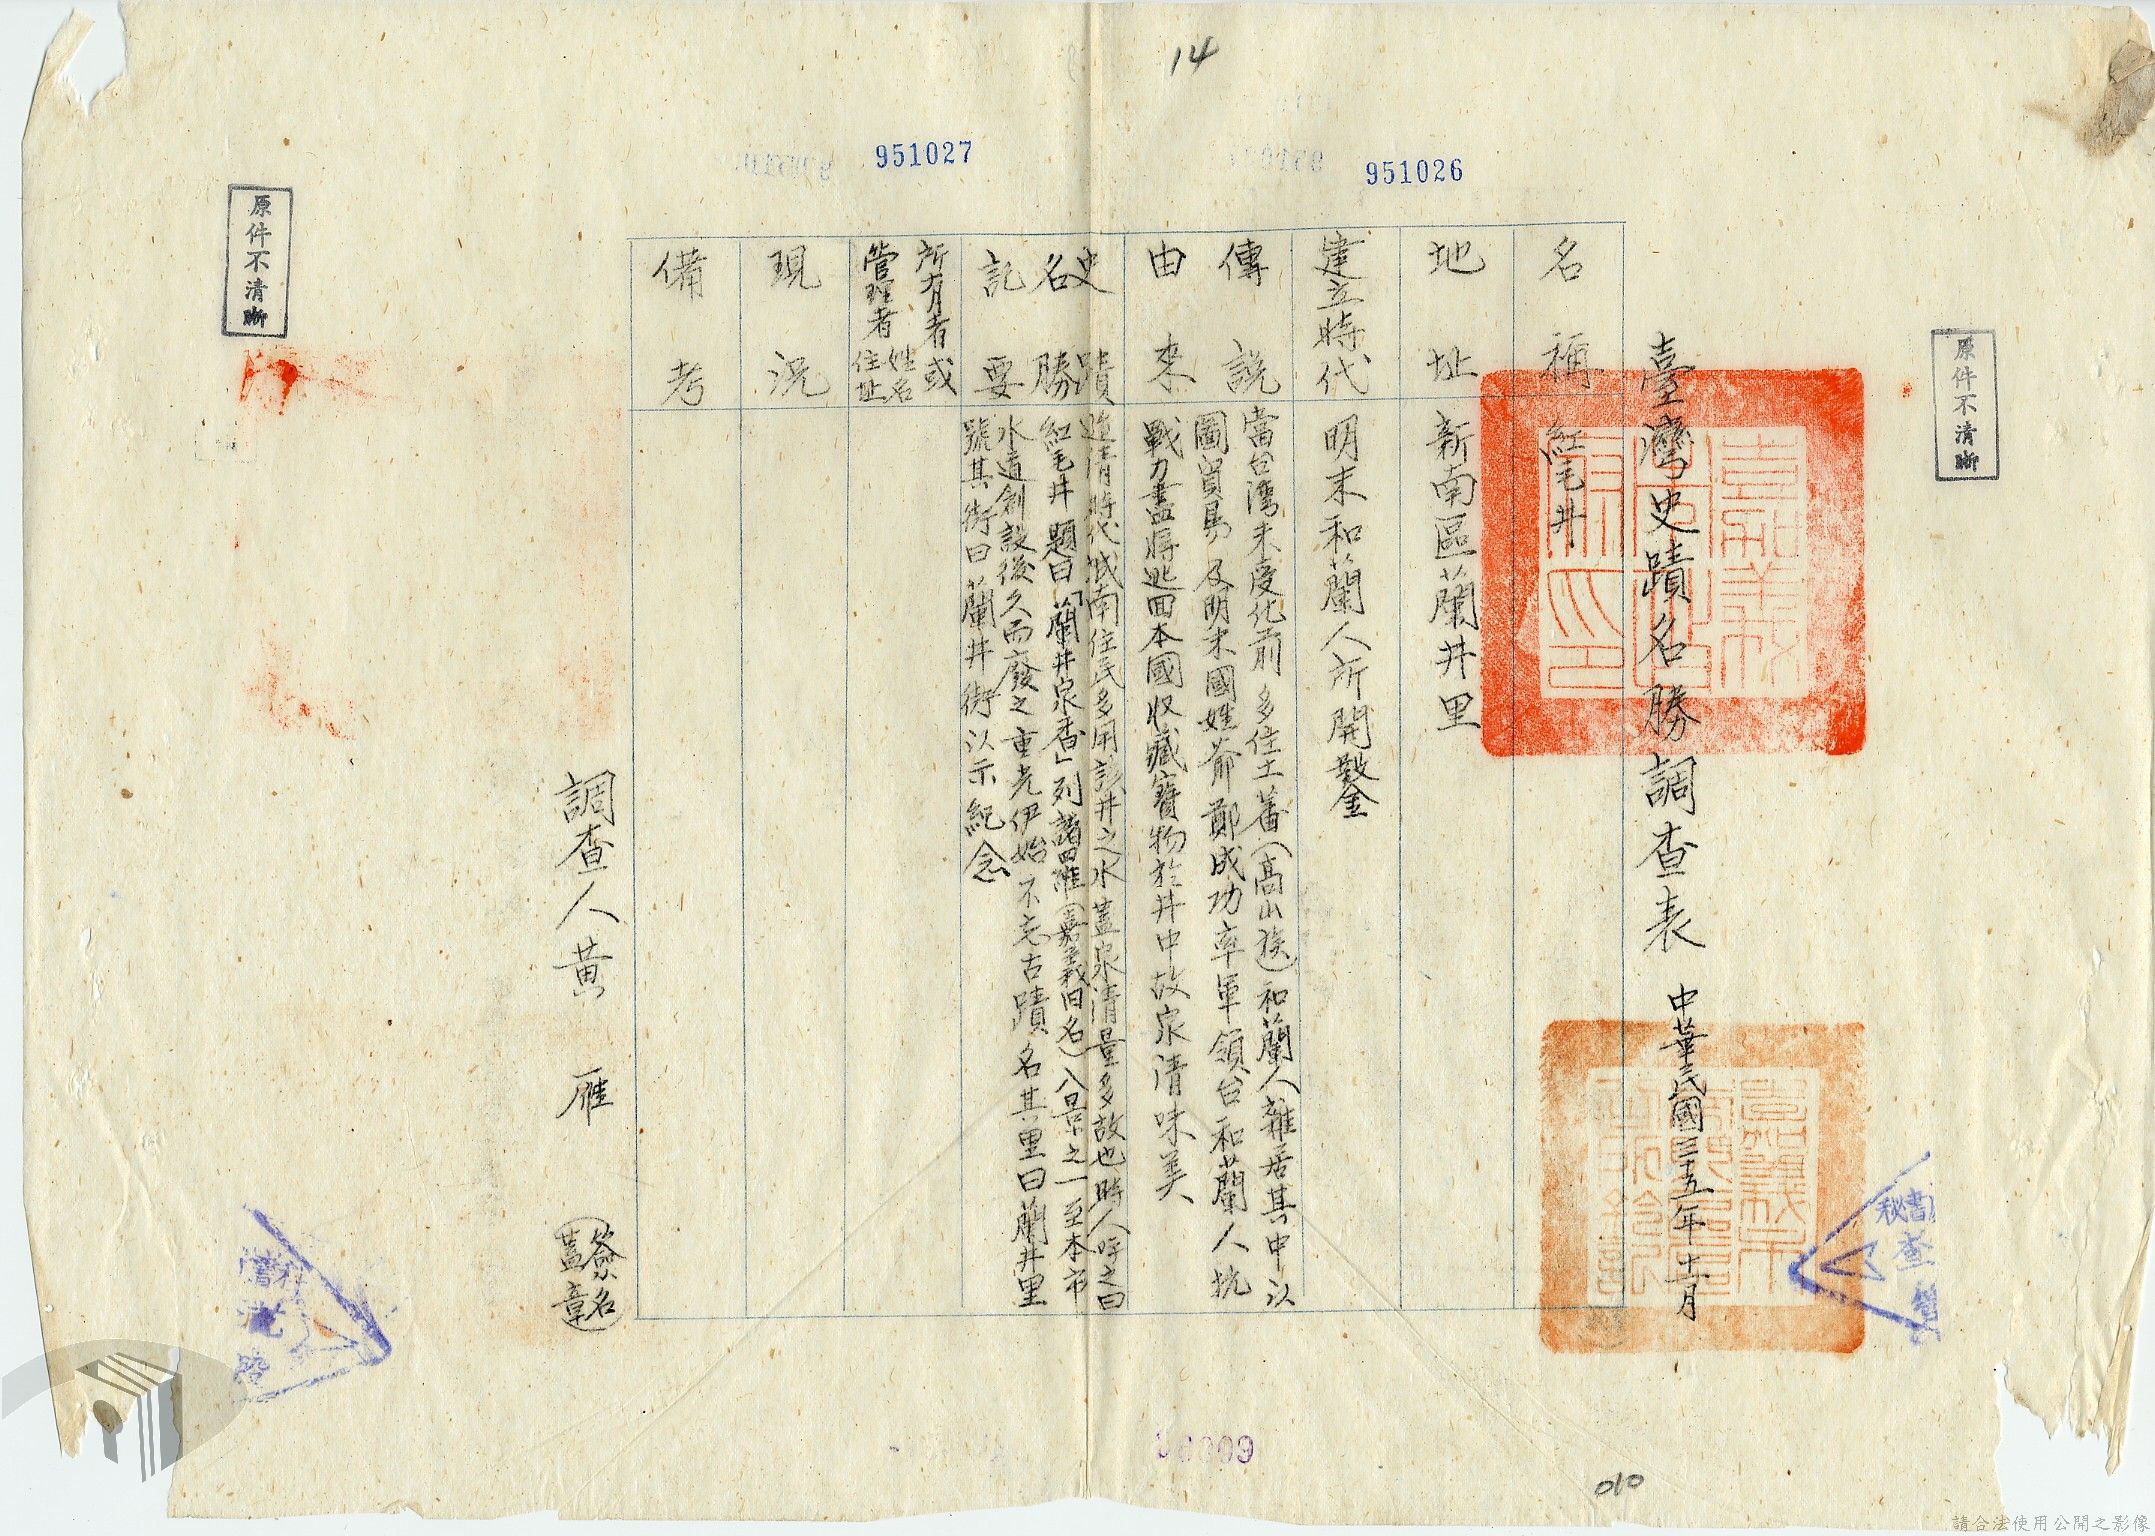 14
951026
951027
原件不清晰
臺灣史蹟名勝調查表
中華民國三十五年十二月
秘書
查
名稱
紅毛井
地址
新南區蘭井里
建立時代
明末和蘭人所開鑿
傳說由來
當台灣未受化前多住土蕃(高山族)和蘭人雜居其中以
圖貿易及明末國姓爺鄭成功率軍領台和蘭人抗
戰力盡將逃回本國收藏寶物於井中故泉清味美
史蹟名勝記要
迨清時代城南住民多用該井之水蓋泉清量多故也時人呼之曰
紅毛井題曰「蘭井泉香」列諸羅(嘉義旧名)八景之一至本市
水道創設後久而廢之重光伊始不忘古蹟名其里曰蘭井里
號其街曰蘭井街以示紀念
所有者或管理者姓名住址
現況
備考
調查人黃雁
(簽名蓋章)
原件不清晰
010
請合法使用公開之影像